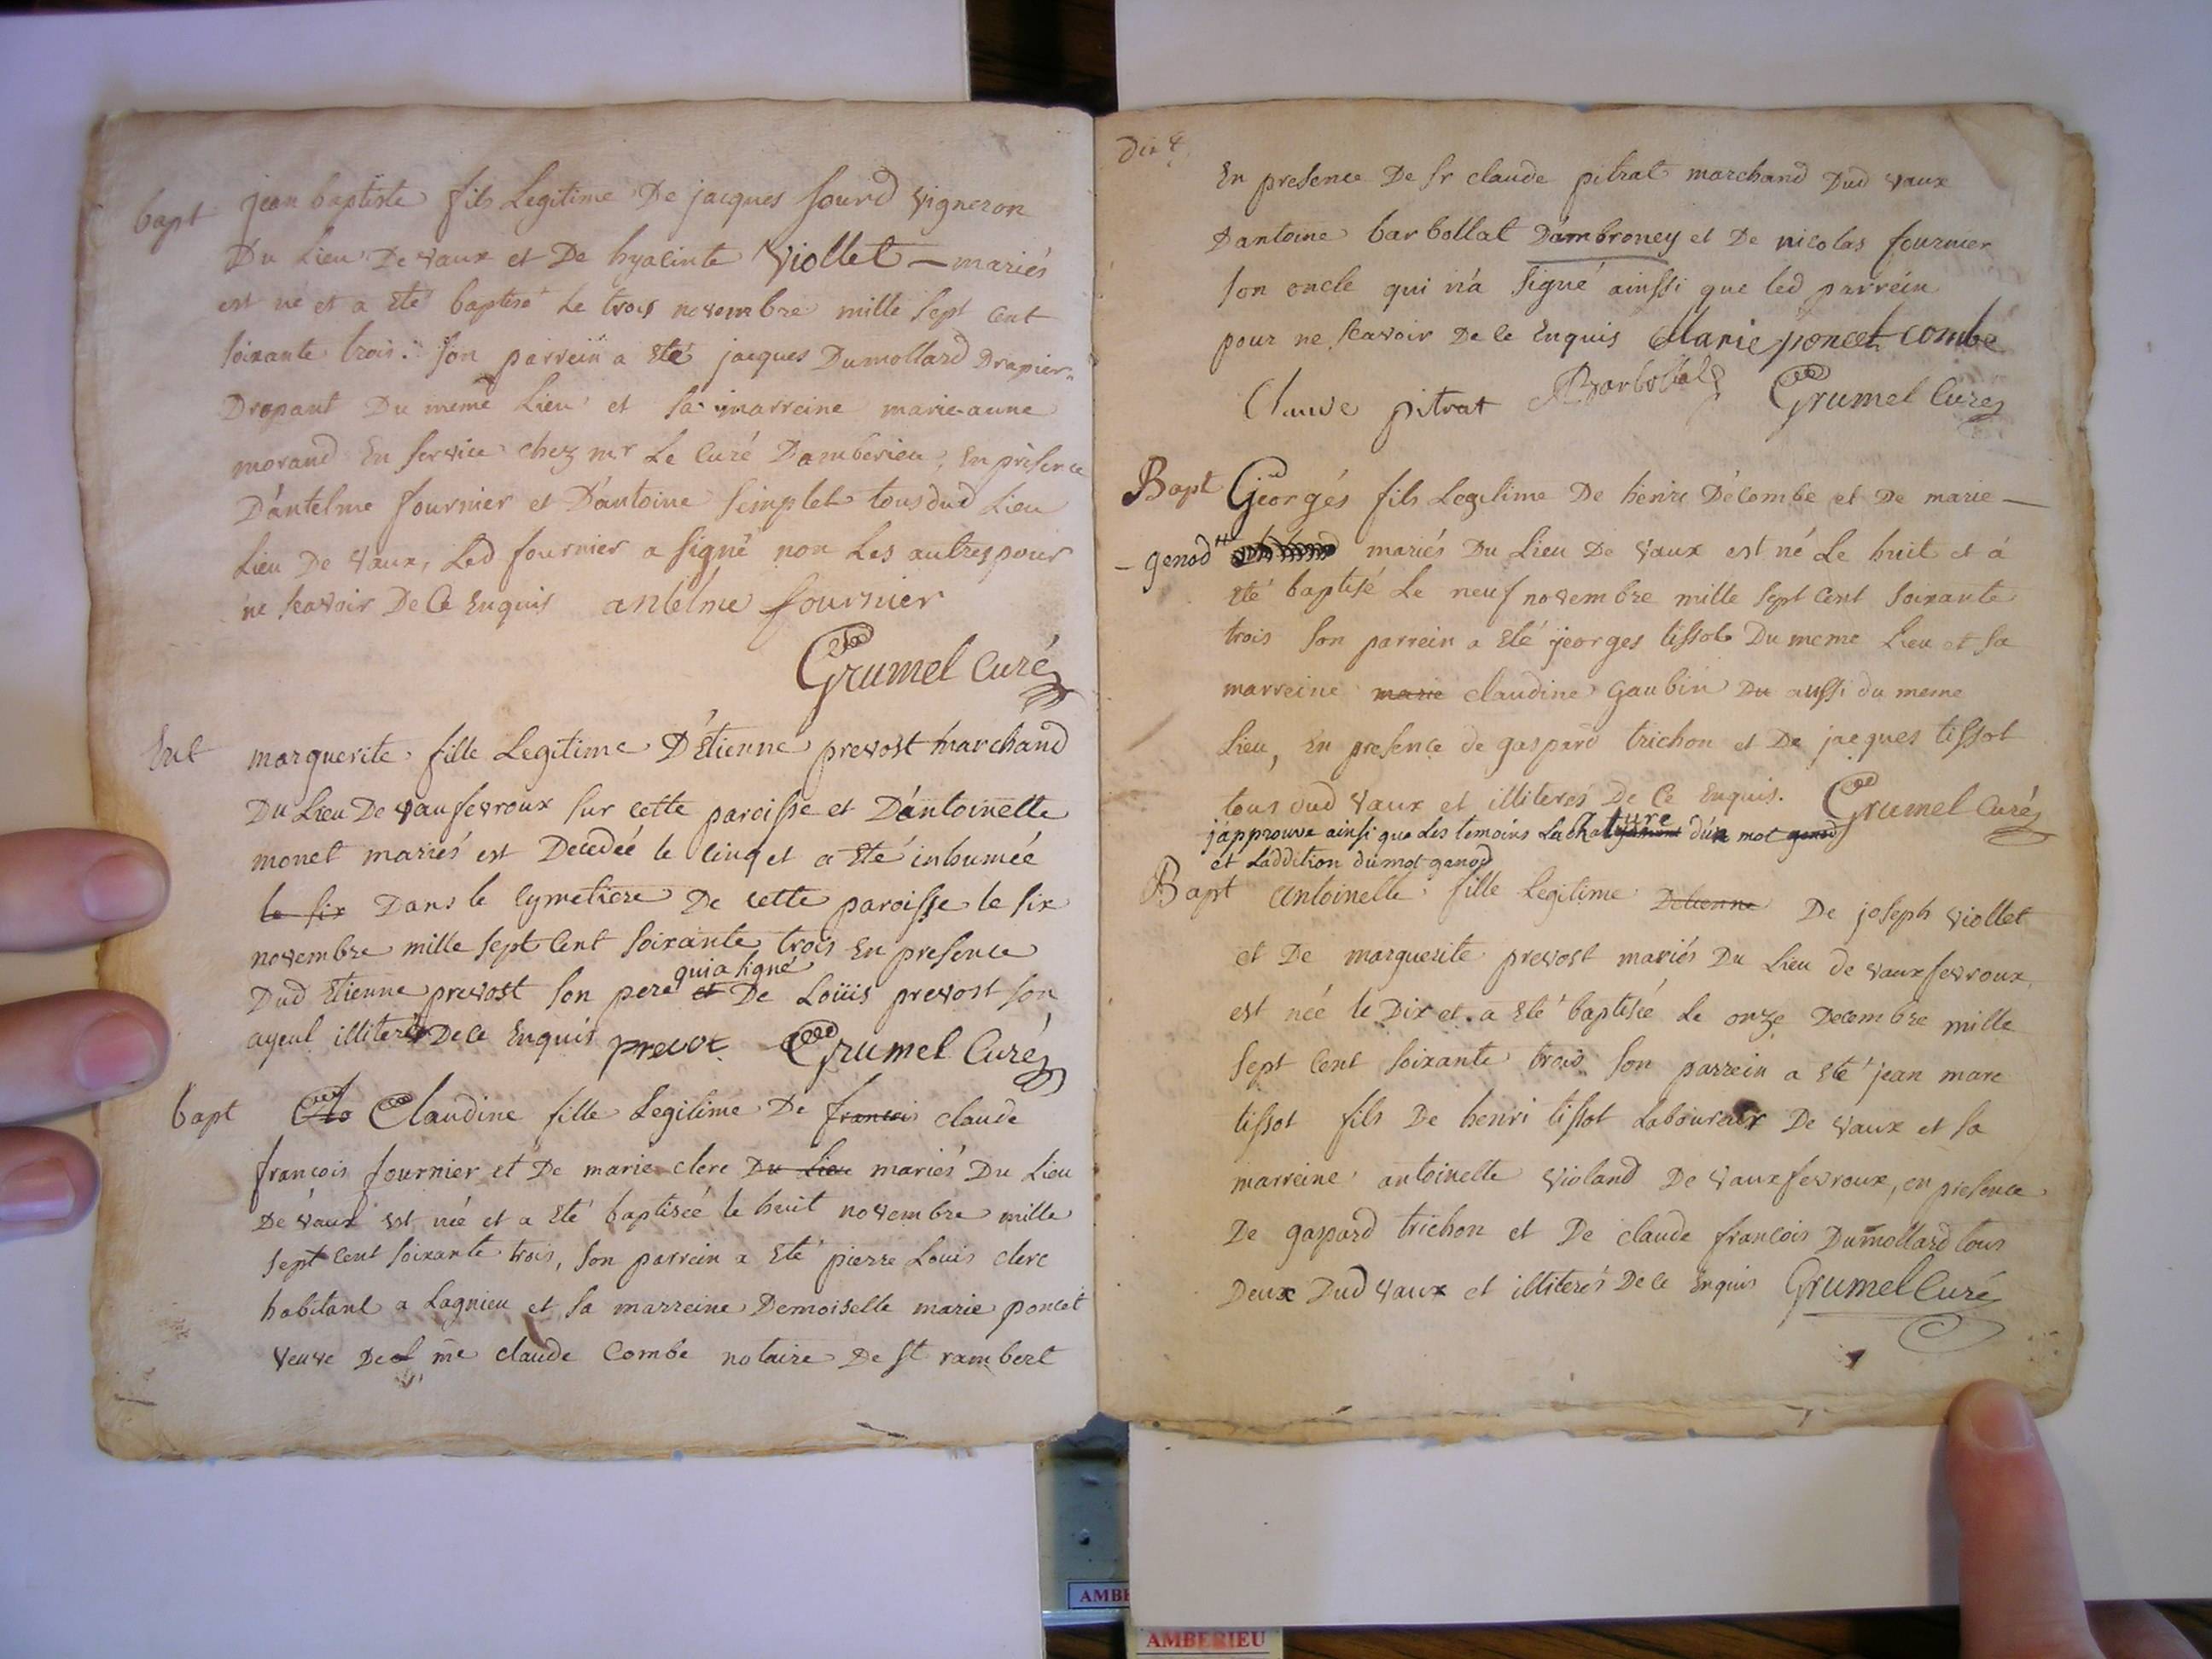 bapt jean baptiste fils Legitime De jacques Sourd Vigneron
Du Lieu De Vaux et De hyacinte Viollet — mariés
est né et a eté baptisé Le trois novembre mille Sept Cent
Soixante trois. Son parrein a eté jacques Dumollard Drapier
Drapant Du meme Lieu et Sa marreine marie anne
morand En Service chez mr Le Curé Damberieu, En présence
D'antelme fournier et D'antoine Simplet tous dud Lieu
Lieu De Vaux, Led fournier a Signé non Les autres pour
ne Scavoir De Ce Enquis antelme fournier
Grumel Curé
Ent marguerite fille Legitime D'Etienne prevost marchand
Du Lieu De vaufevroux Sur cette paroisse et D'antoinette
monet mariés est Decedée le Cinq et a eté inhumée
le six Dans le Cymetiere De cette paroisse le Six
novembre mille Sept Cent Soixante trois En presence
qui a signé
Dud Etienne prevost Son pere et De Loüis prevost Son
ayeul illiteré De Ce Enquis prevot Grumel Curé
bapt Cla Claudine fille Legitime De francois claude
françois fournier et De marie clerc Du Lieu mariés Du Lieu
De Vaux est née et a eté baptisée le huit novembre mille
Sept Cent Soixante trois, Son parrein a eté pierre Louis clerc
habitant a Lagnieu et Sa marreine Demoiselle marie poncet
Veuve De me claude Combe notaire De St rambert
En presence De Sr claude pitrat marchand Dud Vaux
Dantoine barbollat D'ambroney et De nicolas fournier
Son oncle qui n'a Signé ainssi que led parrein
pour ne Scavoir De Ce Enquis Marie poncet combe
Claude pitrat Barbollat Grumel Curé
Bapt Georgés fils Legitime De henri Décombe et De marie —
- genod mariés Du Lieu De Vaux est né Le huit et á
eté baptisé Le neuf novembre mille Sept Cent Soixante
trois Son parrein a eté georges tissot Du meme Lieu et Sa
marreine marie claudine Gaubin Du aussi du meme
Lieu, En presence de gaspard trichon et De jacques tissot
tous dud Vaux et illiterés De Ce Enquis. Grumel Curé
j'approuve ainsi que Les temoins La d'un mot genod
et L'addition du mot genod
Bapt Antoinette fille Legitime Detienne De joseph Viollet
et De marguerite prevost mariés Du Lieu de vauxfevroux
est née le Dix et a eté baptisée Le onze Decembre mille
Sept Cent Soixante trois Son parrein a eté jean marc
tissot fils De henri tissot Laboureur De Vaux et Sa
marreine antoinette Violand De Vauxfevroux, en presence
De gaspard trichon et De claude françois Dumollard tous
Deux Dud Vaux et illiterés De Ce Enquis Grumel Curé
AMBERIEU